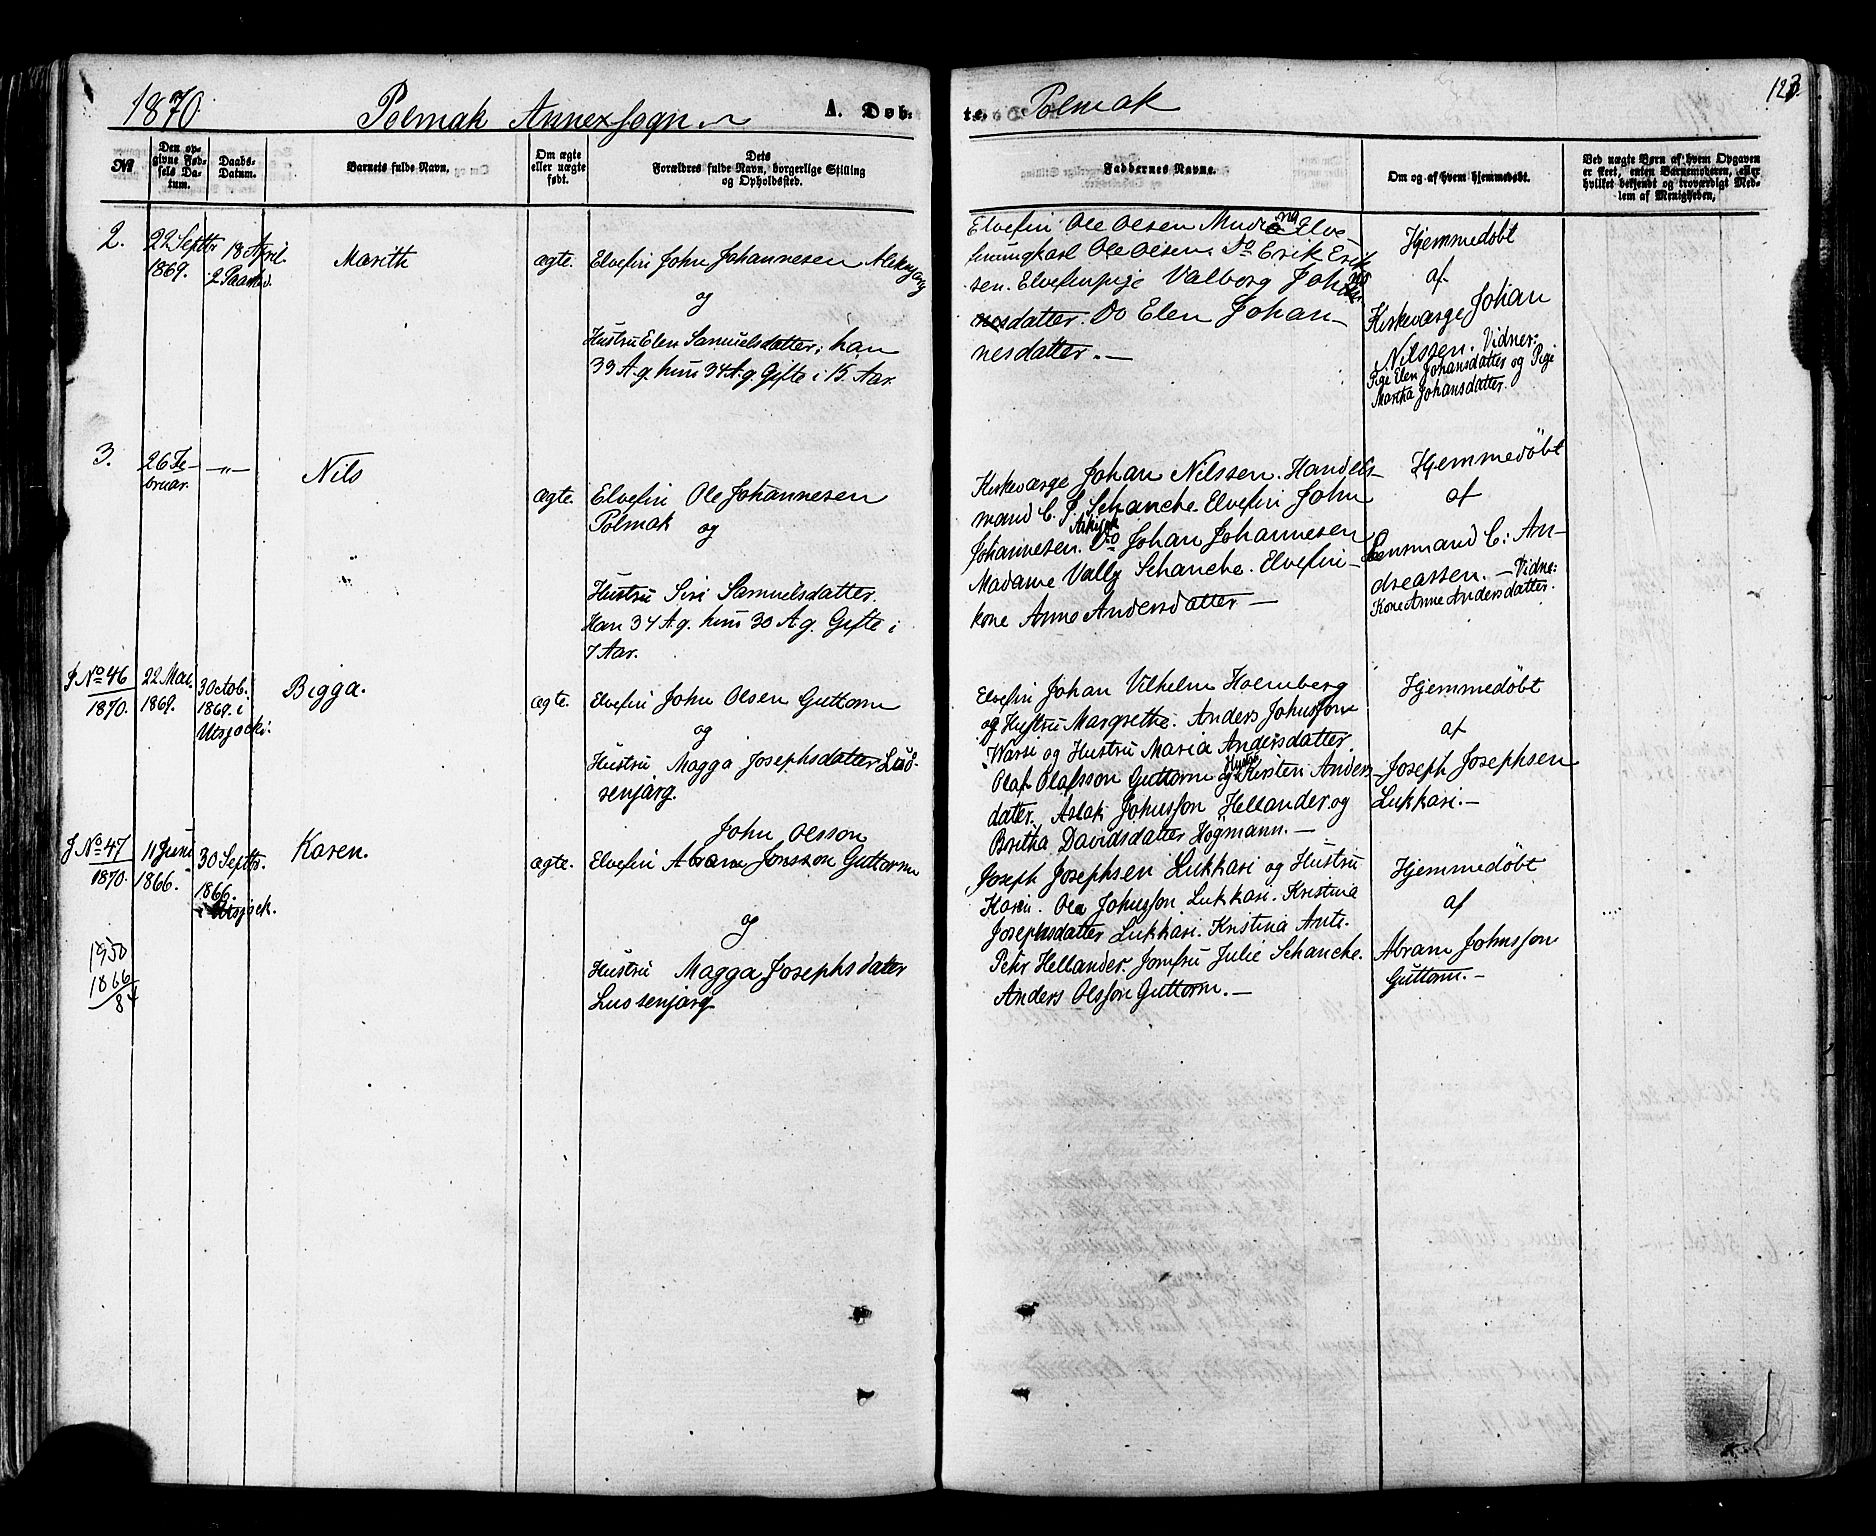 1870
Polmak Annexsogn
A. Døb-
te.
Polmak
123.
№
Den op-
givne Fød-
sels Da-
tum.
Daabs-
Datum.
Barnets fulde Navn.
Om ægte
eller uægte
født.
Dets
Forældres fulde Navn, borgerlige Stilling
og Opholdssted.
Faddernes Navne.
Om og af hvem hjemmedøbt.
Ved uægte Børn af hvem Opgaven
er skeet, enten Barnemoderen, eller
hvilket bekjendt og troværdigt Med-
lem af Menigheden.
2.
22 Septbr
1869.
18 April
2 Paaskd.
Marith
ægte.
Elvefin John Johannesen
og
Hustru Elen Samuelsdatter; han
33 A. g. hun 34 A. g. Gifte i 15. Aar.
Elvefin Ole Olsen
Ole Olsen. Do Erik Erik
sen. Elvefinpige Valborg Johan
nesdatter. Do Elen Johan-
nesdatter. —
Hjemmedøbt
af
Kirkeværge Johan
Nilssen. Vidner:
Pige Elen Johansdatter og Pige
Maritha Johansdatter.
3.
26 Fe-
bruar.
—„—
Nils
ægte.
Elvefin Ole Johannesen
Polmak og
Hustru Siri Samuelsdatter.
Han 34 A. g. hun 30 A. g. Gifte i
7 Aar.
Kirkeværge Johan Nilssen. Handels-
mand C. P. Schanche. Elvefin John
Johannesen. Do Johan Johannesen
Madame Vally Schanche. Elvefin-
kone Anne Andersdatter —
Hjemmedøbt
af
Lensmand C. An-
dreassen. — Vidne:
Kone Anne Andersdatter.
J No 46
1870.
22 Mai
1869.
30 Aob.
1869. i
Utsjocki.
Bigga.
ægte.
Elvefin John Olsen Guttorm
og
Hustru Magga Josephsdatter Lus-
senjarg.
Elvefin Johan Vilhelm Holmberg
og Hustru Margrethe. Anders Johnsson
Warsi og Hustru Maria Andersdatter.
Olaf Olafsson Guttorm og Hustru Kirsten Anders-
datter. Aslak Johnsson Hellander og
Britha Davidsdatter Høgmann. —
Hjemmedøbt
af
Joseph Josephsen
Lukkari. —
J No 47
1870.
11 Juni
1866.
30 Septbr.
1866.
i Utsjock.
Karen.
ægte.
John Olsson
Elvefin Abram Jonsson Guttorm
og
Hustru Magga Josephsdater
Lussenjarg.
Joseph Josephsen Lukkari og Hustru
Karin. Ola Johnsson Lukkari. Kristina
Josephsdatter Lukkari. Kristina Ants.
Petr Hellander. Jomfru Julie Schancke.
Anders Olsson Guttorm. —
Hjemmedøbt
af
Abram Johnsson
Guttorm. —
1950
1866
84